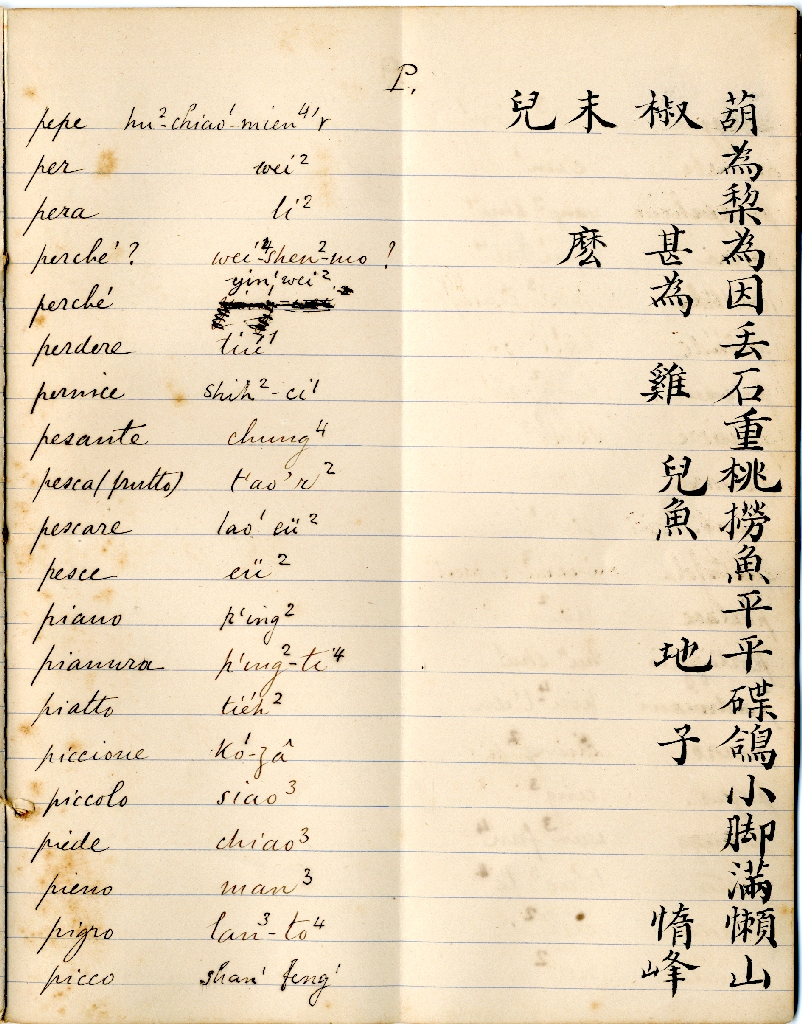 P.
pepe hu²-chiao¹-mien⁴'r 兒 末 椒 葫
per wei² 為
pera li² 梨
perché? wei⁴-shen²-mo? 麼 甚 為
perché yin¹ wei² 為 因
perdere tiu¹ 丟
pernice shih²-ci¹ 雞 石
pesante chung⁴ 重
pesca (frutto) t'ao'r² 兒 桃
pescare lao¹ eü² 魚 撈
pesce eü² 魚
piano p'ing² 平
pianura p'ing²-ti⁴ 地 平
piatto tiéh² 碟
piccione Kó¹-zâ 子 鴿
piccolo siao³ 小
piede chiao³ 脚
pieno man³ 滿
pigro lan³-to⁴ 惰 懶
picco shan¹ feng¹ 峰 山